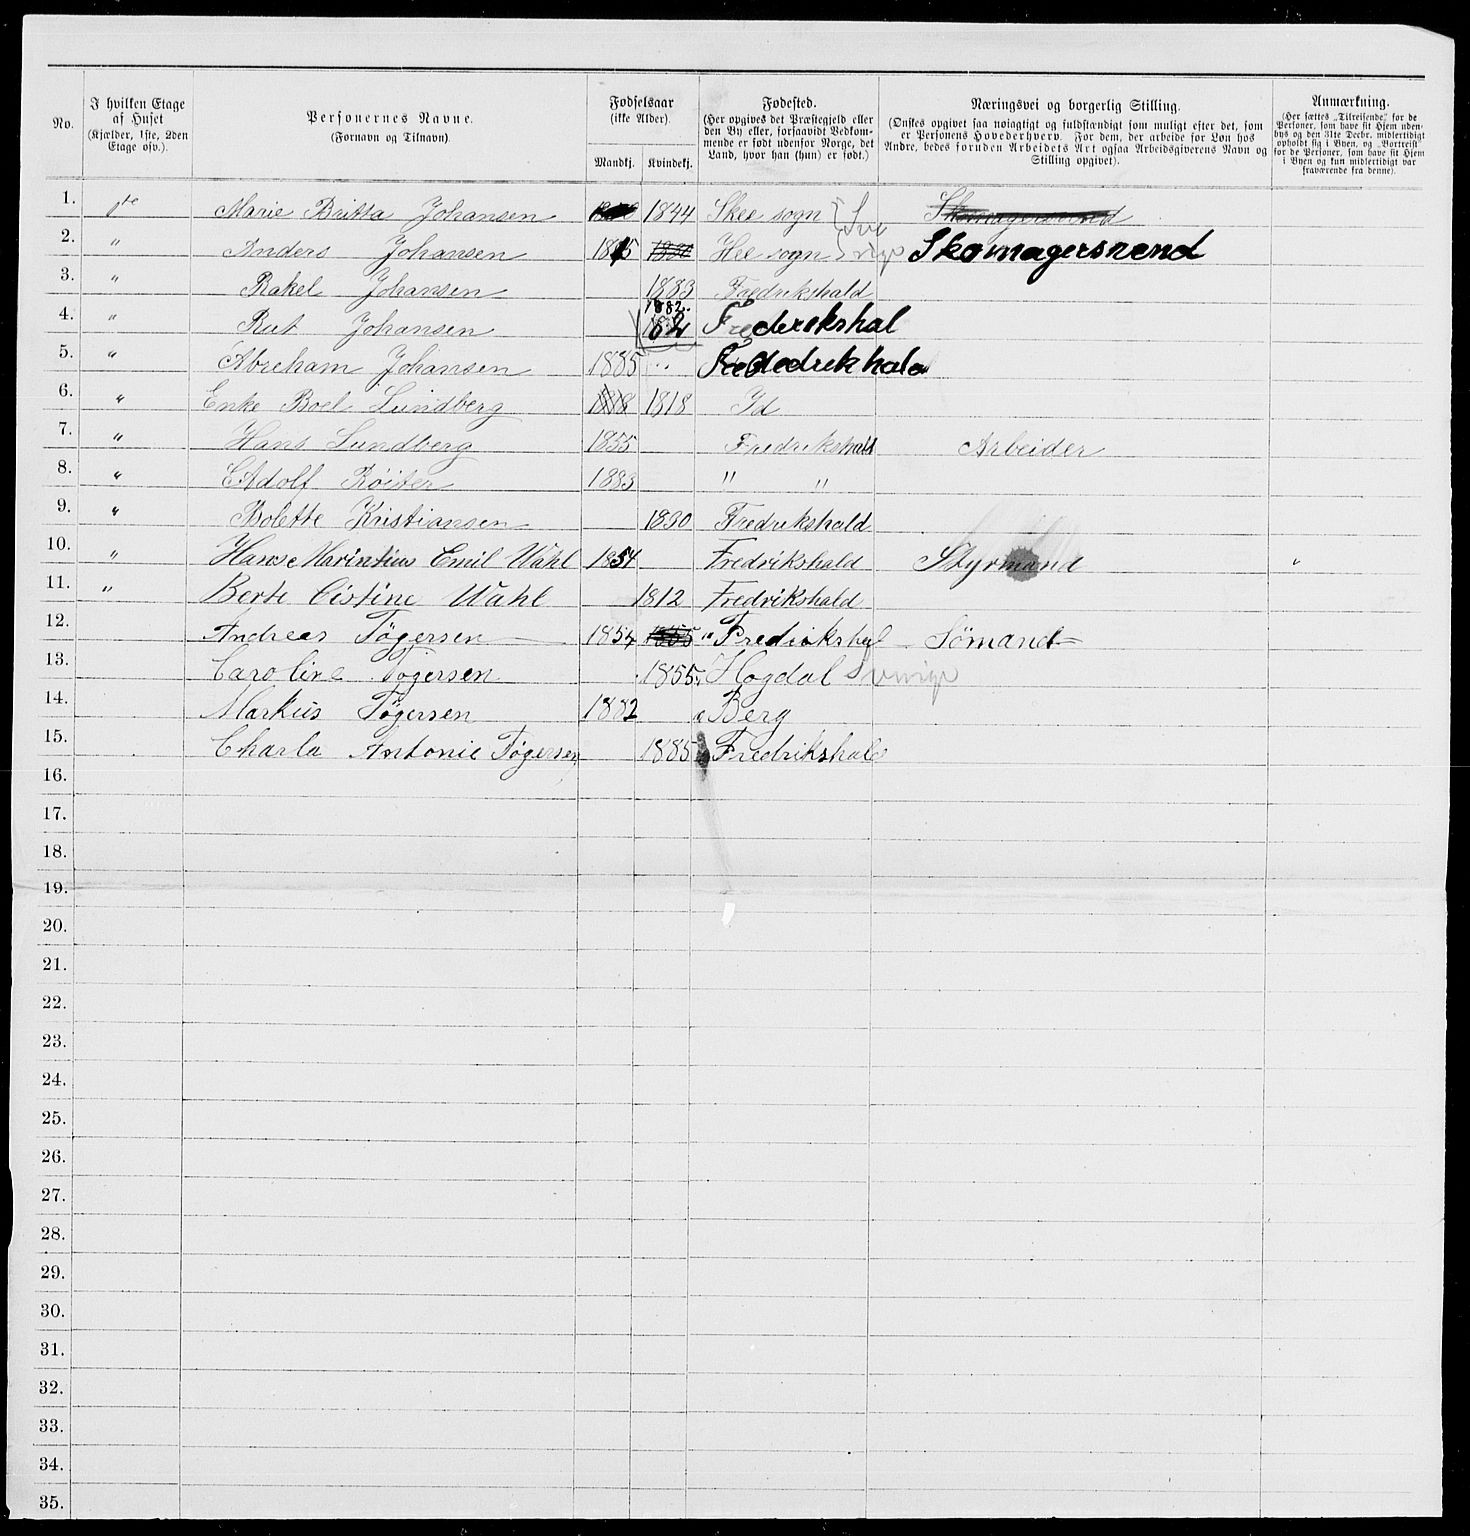 No.
I hvilken Etage af Huset (Kjælder, 1ste, 2den Etage osv.).
Personernes Navne. (Fornavn og Tilnavn).
Fødselsaar (ikke Alder). Mandkj. Kvindekj.
Fødested. (Her opgives det Præstegjeld eller den By eller, forsaavidt Vedkommende er født udenfor Norge, det Land, hvor han (hun) er født.)
Næringsvei og borgerlig Stilling. (Ønskes opgivet saa nøiagtigt og fuldstændigt som muligt efter det, som er Personens Hovederhverv. For dem, der arbeide for Løn hos Andre, bedes foruden Arbeidets Art ogsaa Arbeidsgiverens Navn og Stilling opgivet).
Anmærkning. (Her sættes „Tilreisende“ for de Personer, som have sit Hjem udenbys og den 31te Decbr. midlertidigt opholdt sig i Byen, og „Bortreist“ for de Personer, som have sit Hjem i Byen og kun midlertidigt var fraværende fra denne).
1. 1te Marie Britta Johansen 1844 Skee sogn Sve
2. " Anders Johansen Hee sogn rige Skomagersvend
3. " Rakel Johansen 1883 Fredrikshald
4. " Rut Johansen 1882 Frederikshal
5. " Abreham Johansen 1885
6. " Enke Boel Lundberg 1818 1818 Id
7. " Hans Lundberg 1855 Fredrikshald Arbeider
8. " Adolf Röiter 1883 " "
9. " Bolette Kristiansen 1830 Fredrikshald
10. " Hans Marintius Emil Wahl 1854 Fredrikshald Styrmand "
11. " Berte Cistine Wahl 1812 Fredrikshald
12. Andreas Tøgersen 1854 1855 " Fredrikshal Sømand
13. Caroline Tøgersen 1855 Hogdal Sverige
14. Markus Tøgersen 1882 Berg
15. Charla Antonie Tøgersen 1885 Fredrikshald
16.
17.
18.
19.
20.
21.
22.
23.
24.
25.
26.
27.
28.
29.
30.
31.
32.
33.
34.
35.